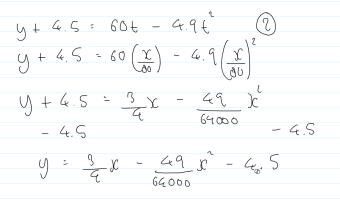 y + 4.5 = 60t - 4.9t² ②
y + 4.5 = 60(x/80) - 4.9(x/80)²
y + 4.5 = 3/4 x - 49/64000 x²
- 4.5 - 4.5
y = 3/4 x - 49/64000 x² - 4.5